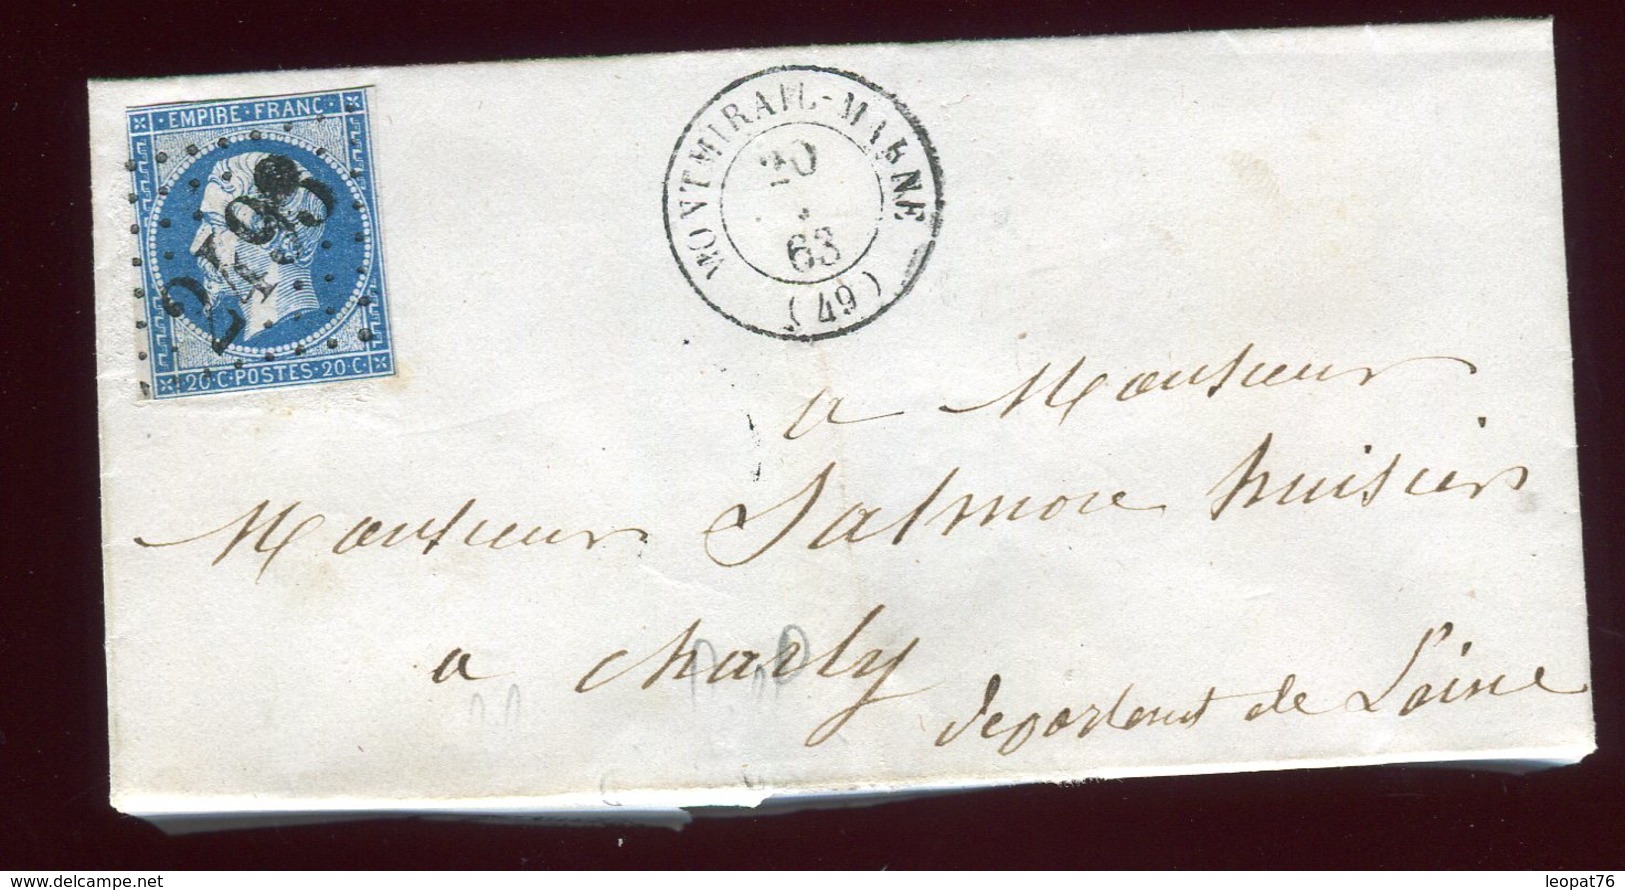 EMPIRE·FRANC·
20·C·POSTES·20·C
MONTMIRAIL-MARNE
20
63
(49)
a Monsieur
Monsieur Salmon huissier
a charly
departement de L'aisne
PP
delcampe.net
leopat76